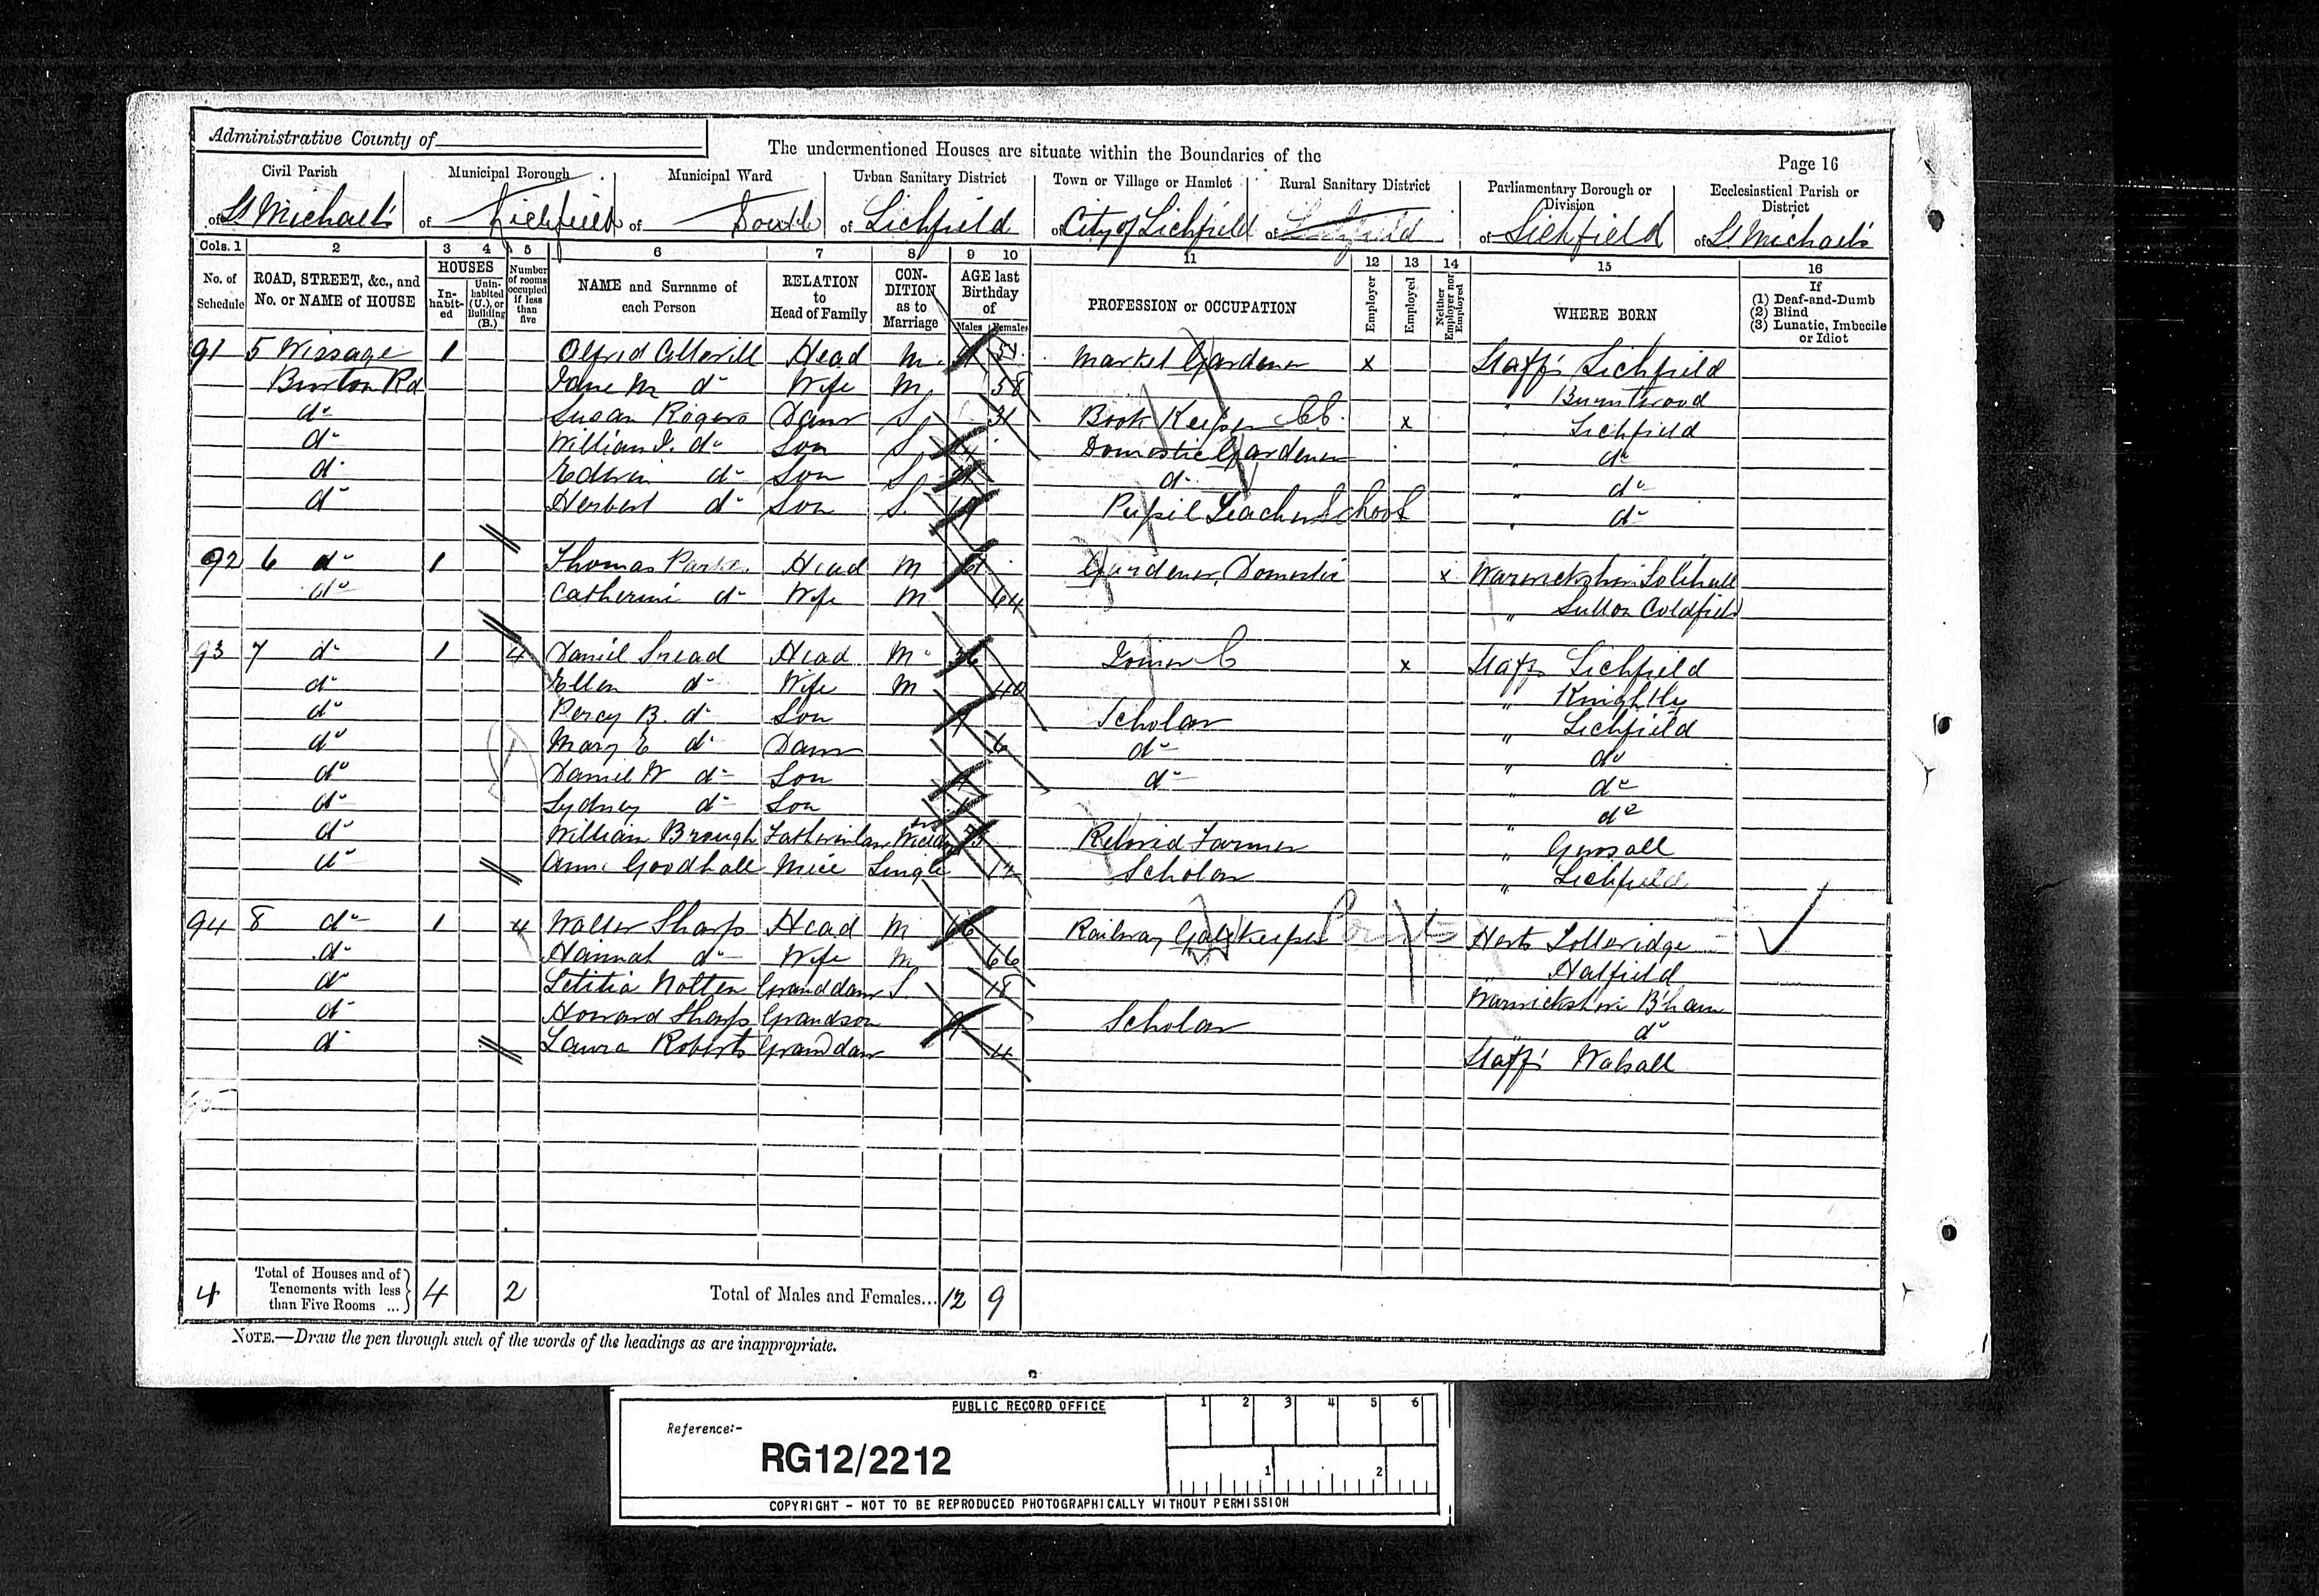 Administrative County of
The undermentioned Houses are situate within the Boundaries of the
Page 16
Civil Parish Municipal Borough Municipal Ward Urban Sanitary District Town or Village or Hamlet Rural Sanitary District Parliamentary Borough or Division Ecclesiastical Parish or District
of St Michael's of Lichfield of South of Lichfield of City of Lichfield of Lichfield of Lichfield of St Michael's
Cols. 1 2 3 4 5 6 7 8 9 10 11 12 13 14 15 16
No. of Schedule ROAD, STREET, &c., and No. or NAME of HOUSE HOUSES In-habit-ed Unin-habited (U.), or Building (B.) Number of rooms occupied if less than five NAME and Surname of each Person RELATION to Head of Family CON-DITION as to Marriage AGE last Birthday of Males Females PROFESSION or OCCUPATION Employer Employed Neither Employer nor Employed WHERE BORN If (1) Deaf-and-Dumb (2) Blind (3) Lunatic, Imbecile or Idiot
91 5 Wissage 1 Alfred Cotterill Head M. Market Gardener x Staffs Lichfield
Burton Rd Jane M do Wife M 58 " Burntwood
do Susan Rogers Daur S 31 Book Keeper x Lichfield
do William J. do Son S Domestic Gardener " do
do Edwin do Son S do " do
do Herbert do Son S. 19 Pupil Teacher School " do
92 6 do 1 Thomas Parker Head M Gardener, Domestic x Warwickshire Solihull
do Catherine do Wife M 64 " Sutton Coldfield
93 7 do 1 4 Daniel Snead Head M 36 Joiner C x Staffs Lichfield
do Ellen do Wife M 40 " Knightly
do Percy B. do Son Scholar " Lichfield
do Mary E do Daur 6 do " do
do Daniel W do Son do " do
do Sydney do Son " do
do William Brough Fatherinlaw Widr 73 Retired Farmer " Gnosall
do Annie Goodhall Niece Single 12 Scholar " Lichfield
94 8 do 1 4 Walter Sharp Head M 66 Railway Gatekeeper Herts Totteridge
do Hannah do Wife M 66 " Hatfield
do Letitia Notten Granddaur S. 18 Warwickshire B'ham
do Howard Sharp Grandson 9 Scholar " do
do Laura Roberts Granddaur 4 Staffs Walsall
4 Total of Houses and of Tenements with less than Five Rooms ... 4 2 Total of Males and Females... 12 9
NOTE.—Draw the pen through such of the words of the headings as are inappropriate.
PUBLIC RECORD OFFICE 1 2 3 4 5 6
Reference:-
RG12/2212
1 2
COPYRIGHT - NOT TO BE REPRODUCED PHOTOGRAPHICALLY WITHOUT PERMISSION